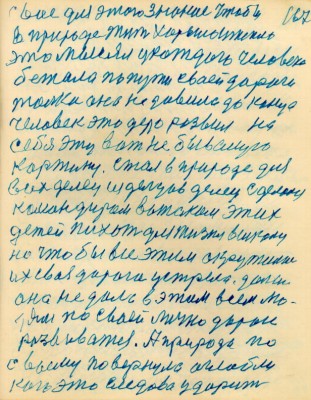 свое для этого знание чтобы 167
в природе жить хорошо можно
это мысля у каждого человека
бежала по пути своей дорогой
только она не давила до конца
человек это дело развил на
себя эту вот не бывалую
картину. Стал в природе для
своих делец и делцов делец сделался
командиром вот таким этих
детей пихот для жизни в школу
но чтобы все этим окружили
их своя дорога устрела. должна
она не дала в этом всем лю-
дям по своей лично дороге
развиватся. А природа по
своему повернула оглобли
кого это следова ударит